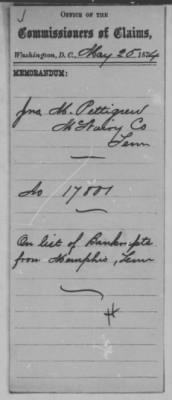 OFFICE OF THE
Commissioners of Claims,
Washington, D. C., May 25 1874
MEMORANDUM:
Jno. M. Pettigrew
McNairy Co
Tenn
No 17881
On list of Bankrupts
from Memphis, Tenn
H